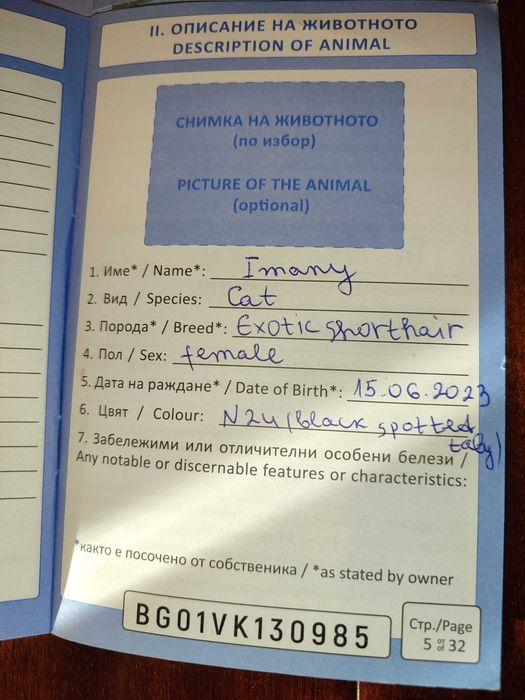 II. ОПИСАНИЕ НА ЖИВОТНОТО
DESCRIPTION OF ANIMAL
СНИМКА НА ЖИВОТНОТО
(по избор)
PICTURE OF THE ANIMAL
(optional)
1. Име* / Name*: Imany
2. Вид / Species: Cat
3. Порода* / Breed*: Exotic shorthair
4. Пол / Sex: female
5. Дата на раждане* / Date of Birth*: 15.06.2023
6. Цвят / Colour: N24 (black spotted
taby)
7. Забележими или отличителни особени белези /
Any notable or discernable features or characteristics:
*както е посочено от собственика / *as stated by owner
BG01VK130985
Стр./Page
5 от/of 32